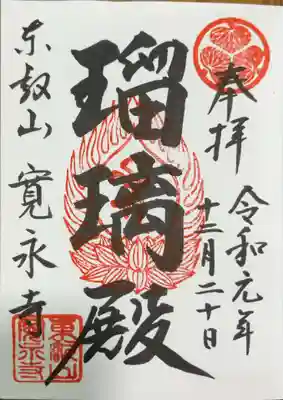 奉拝
令和元年
十二月二十日
瑠璃殿
東叡山 寛永寺
東叡山
寛永寺